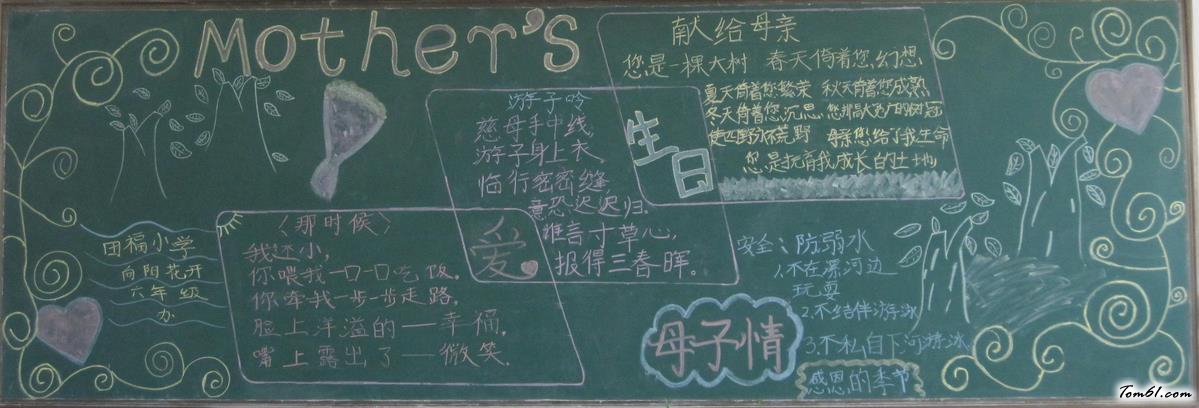 Mother's
田福小学
向阳花开
六年级
办
〈那时候〉
我还小,
你喂我一口一口吃饭。
你牵我一步一步走路。
脸上洋溢的——幸福。
嘴上露出了——微笑。
游子吟
慈母手中线,
游子身上衣。
临行密密缝,
意恐迟迟归.
谁言寸草心,
报得三春晖。
爱
生日
献给母亲
您是一棵大树 春天倚着您幻想
夏天倚着您繁荣 秋天倚着您成熟
冬天倚着您沉思
使四野不荒野 母亲您给了我生命
您是抚育我成长的土地
母子情
安全:防弱水
1.不在漯河边
玩耍
2.不结伴游泳
3.不私自下河游泳
感恩的季节
Tom61.com